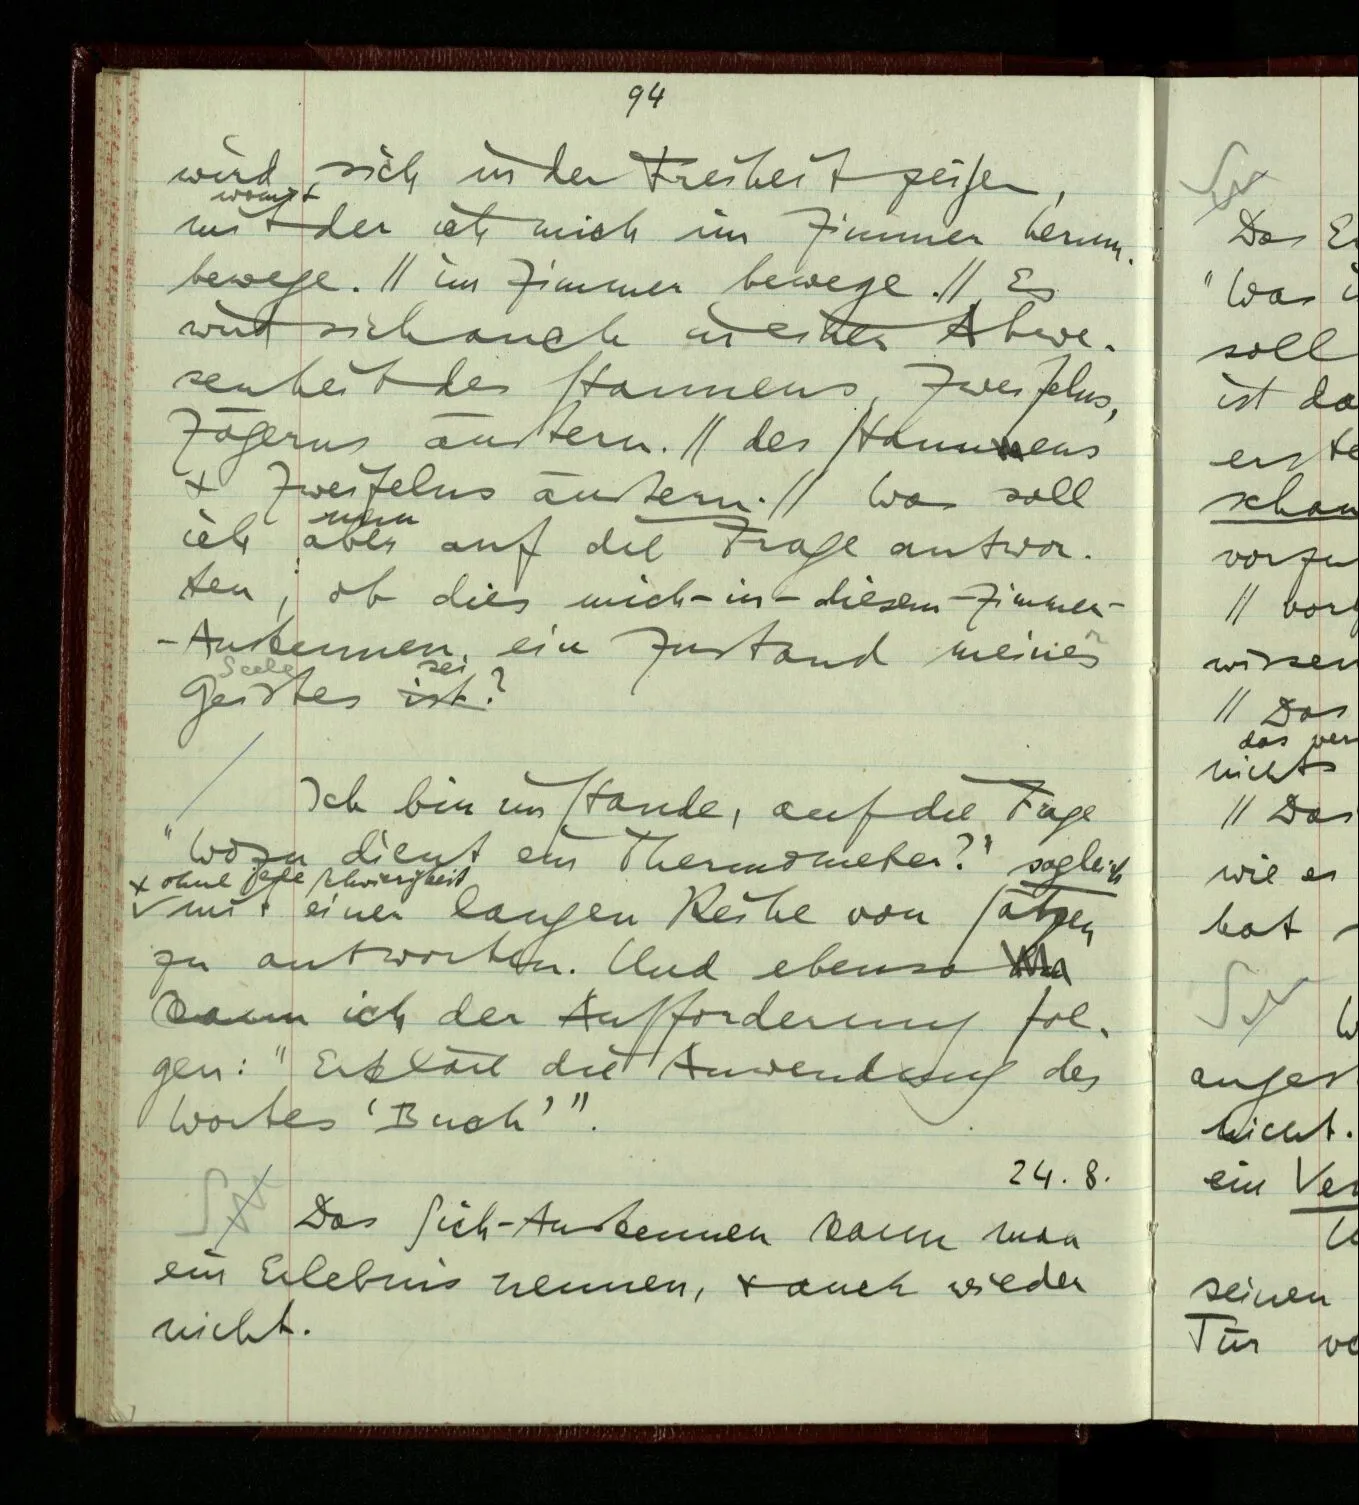 94
wird sich in der Freiheit zeigen,
womit
mit der ich mich im Zimmer herum-
bewege. // im Zimmer bewege. // Es
wird sich auch in einer Abwe-
senheit des Staunens, Zweifelns,
Zögerns äußern. // des Staunens
+ Zweifelns äußern. // Was soll
nun
ich aber auf die Frage antwor-
ten: ob dies mich-in-diesem-Zimmer-
-Auskennen, ein Zustand meines
Seele sei
Geistes ist?
Ich bin im Stande, auf die Frage
"Wozu dient ein Thermometer?" sogleich
+ ohne jede Schwierigkeit
mit einer langen Reihe von Sätzen
zu antworten. Und ebenso
kann ich der Aufforderung fol-
gen: "Erkläre die Anwendung des
Wortes 'Buch'".
24. 8.
Das Sich-Auskennen kann man
ein Erlebnis nennen, + auch wieder
nicht.
Das
"Was
soll
ist
schau
wissen
// Das
nichts
// Das
wie er
hat
nicht.
ein
seinen
Tür